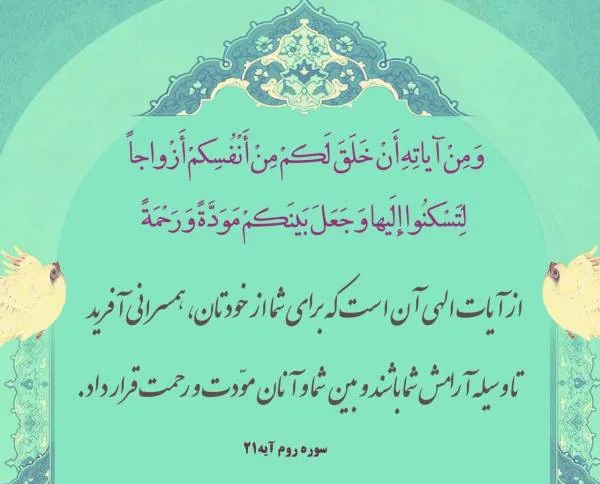 وَمِنْ آياتِهِ أَنْ خَلَقَ لَكُمْ مِنْ أَنْفُسِكُمْ أَزْواجاً
لِتَسْكُنُوا إِلَيها وَجَعَلَ بَيْنَكُمْ مَوَدَّةً وَرَحْمَةً
از آیات الهی آن است که برای شما از خودتان، همسرانی آفرید
تا وسیله آرامش شما باشند و بین شما و آنان مودّت و رحمت قرار داد.
سوره روم آیه۲۱